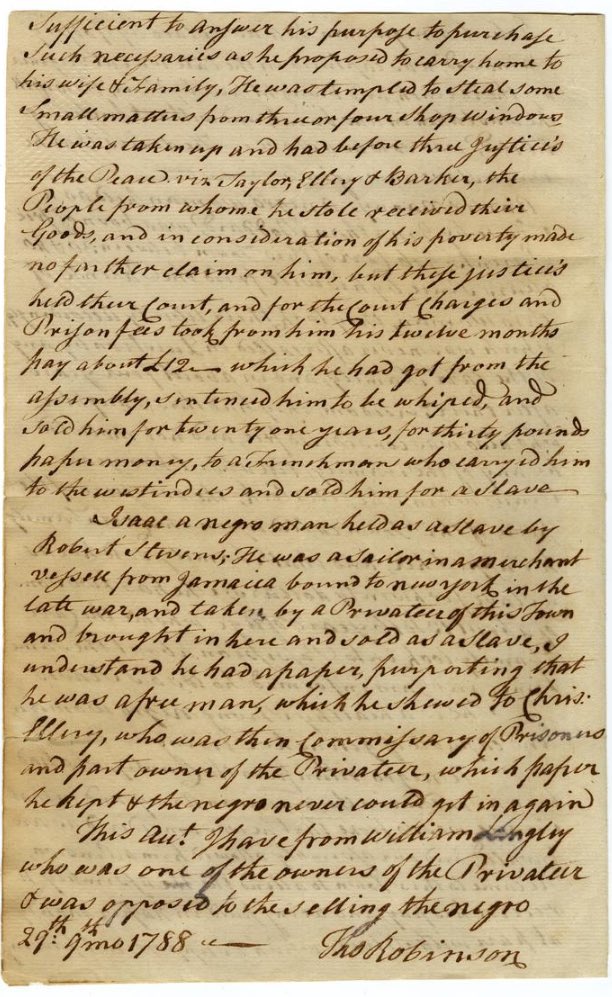 Sufficient to answer his purpose to purchase
Such necessaries as he proposed to carry home to
his wife & Family, He was tempted to steal some
Small matters from three or four shop windows
He was taken up and had before three Justice's
of the Peace viz Taylor, Ellery & Barker, the
People from whome he stole received their
Goods, and in consideration of his poverty made
no farther claim on him, but these justice's
held their Court, and for the Court Charges and
Prison fees took from him his twelve months
pay about £12 — which he had got from the
assembly, sentenced him to be whiped, and
sold him for twenty one years, for thirty pounds
paper money, to a Frenchman who carryed him
to the westindees and sold him for a Slave —
Isaac a negro man held as a slave by
Robert Stevens; He was a sailor in a merchant
vessell from Jamaica bound to new york in the
late war, and taken by a Privateer of this Town
and brought in here and sold as a slave, I
understand he had a paper, purporting that
he was a free man, which he shewed to Chris:
Ellery, who was then Commissary of Prisoners
and part owner of the Privateer, which paper
he kept & the negro never could get in again
This Act. I have from William Langley
who was one of the owners of the Privateer
& was opposed to the selling the negro
29th. 9th mo 1788 — Tho Robinson